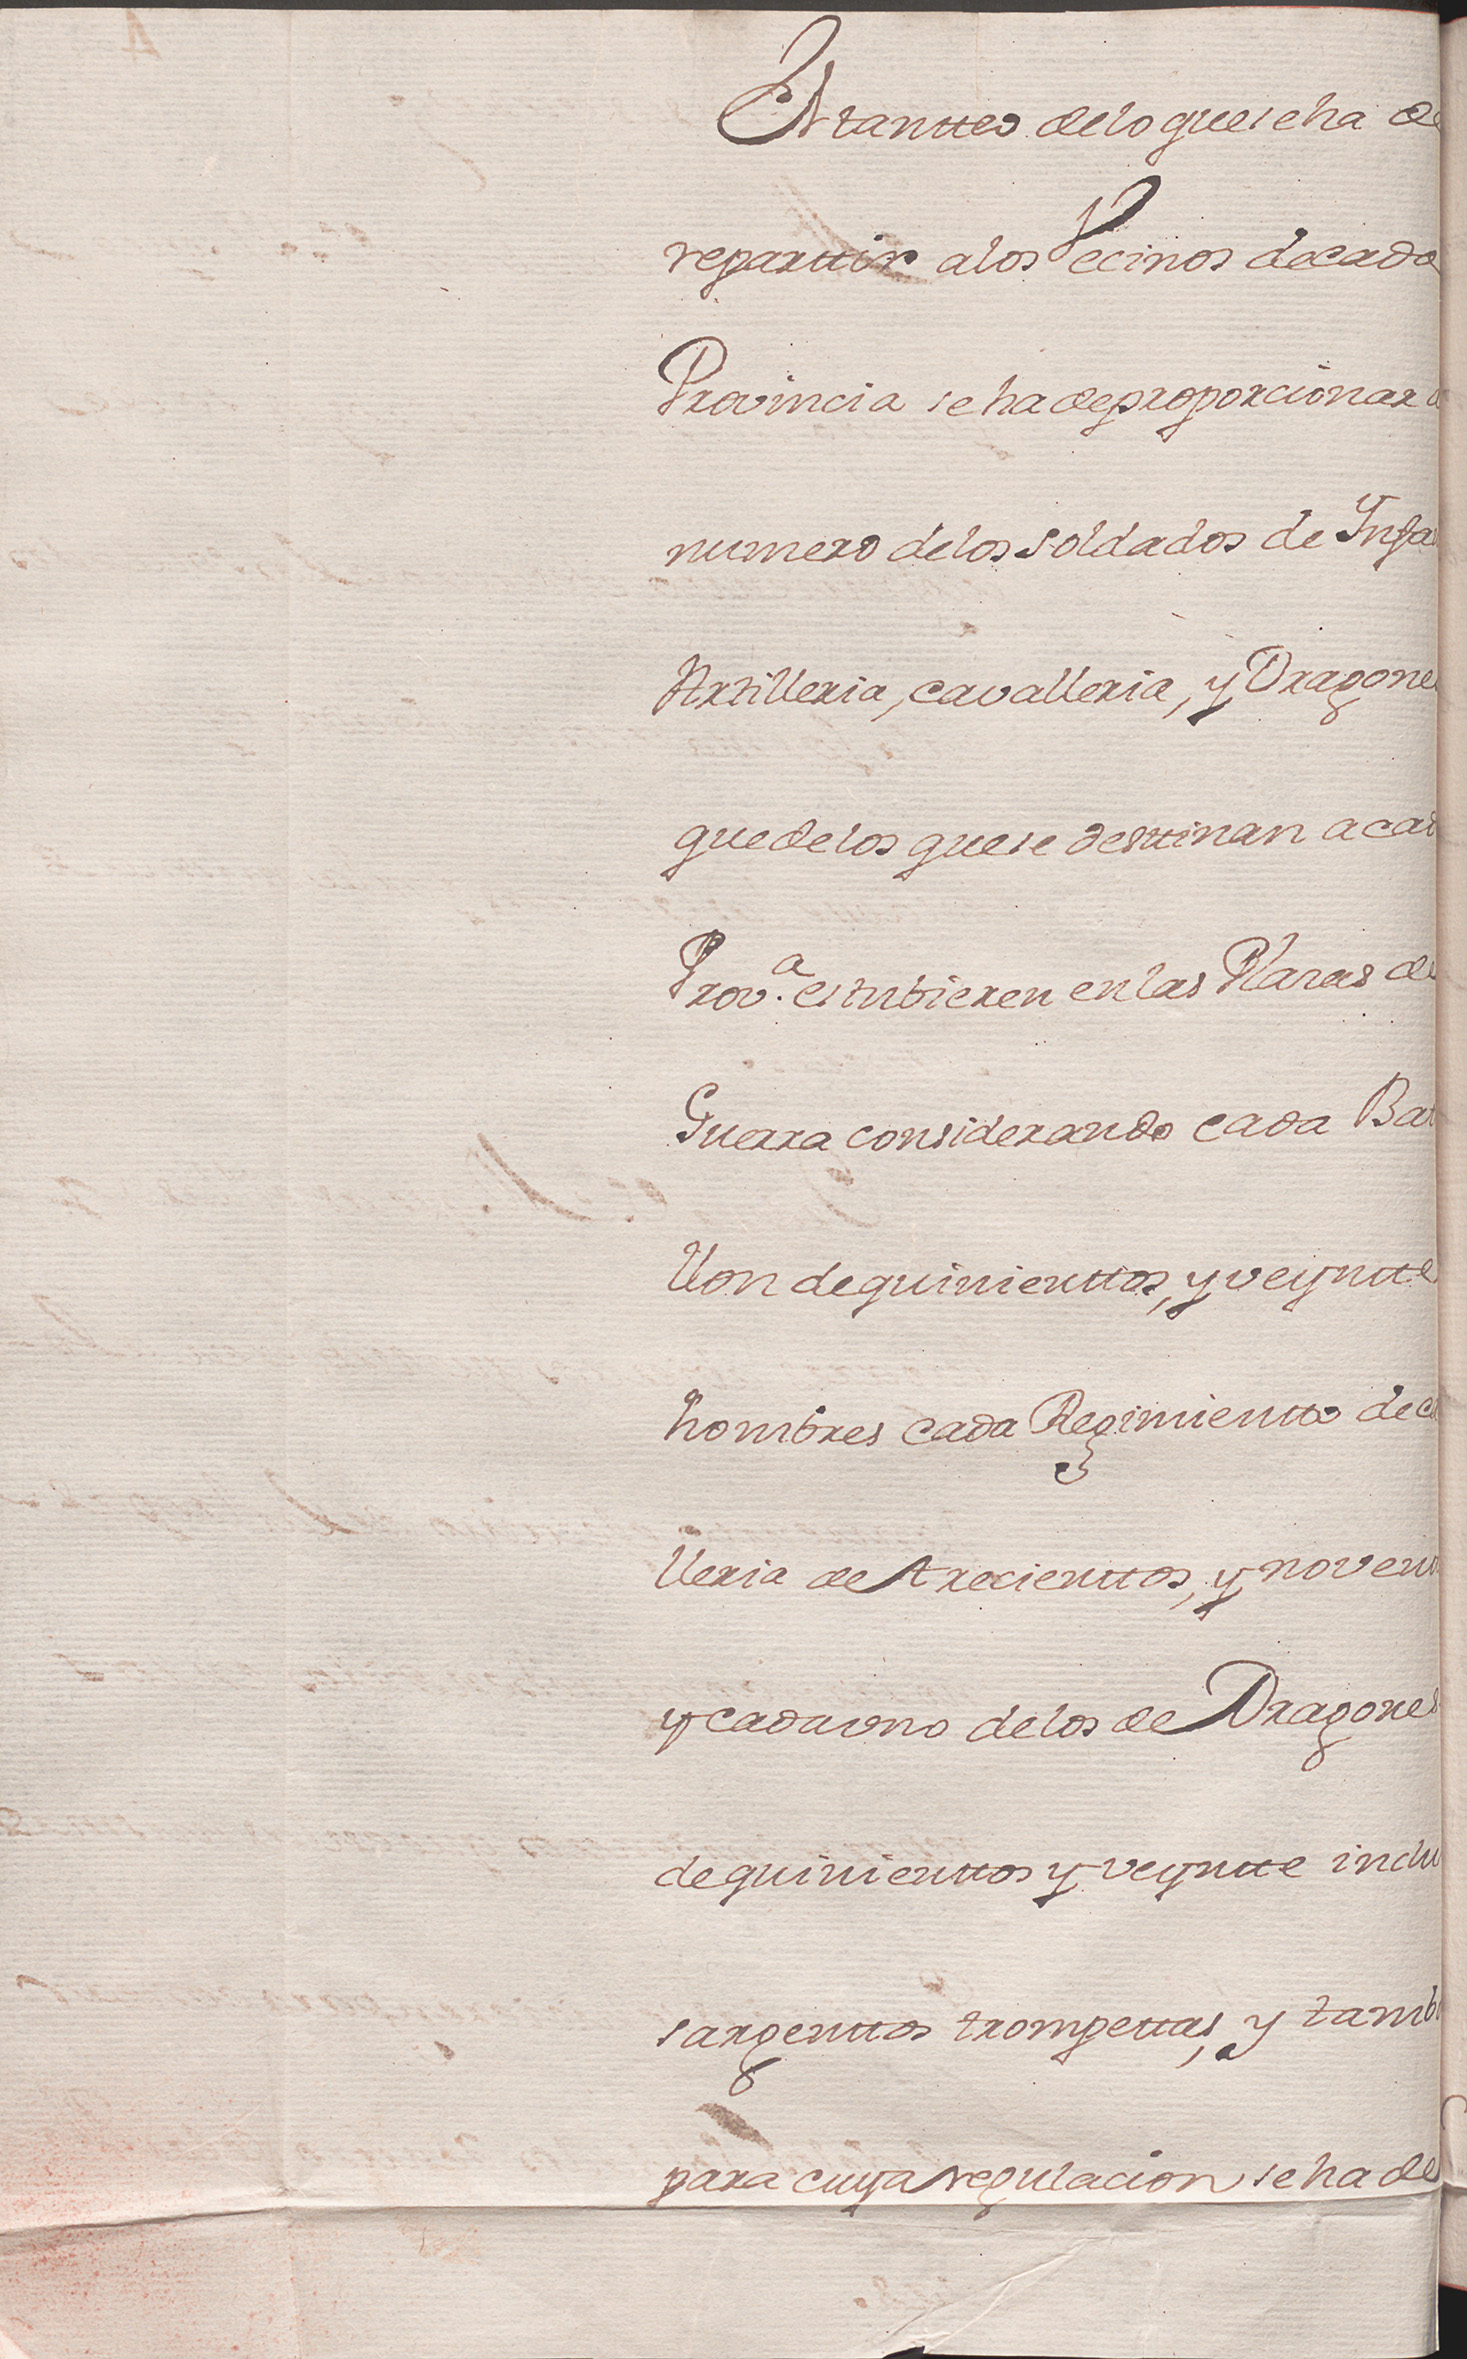 Estantteo delo que se ha de
reparttir alos Vecinos decada
Provincia se ha de proporcionar a
numero delos soldados de Ynfa
Artilleria, cavalleria, y Dragones
que delos que se desttinan a cad
Prov.a estubieren en las Plazas de
Guerra considerando cada Bat
llon de quinienttos, y veyntte
hombres cada Regimientto de ca
lleria de trecienttos, y noven
y cada uno delos de Dragones
de quinienttos y veyntte inclu
sargenttos trompettas, y tambi
para cuya regulacion se ha de